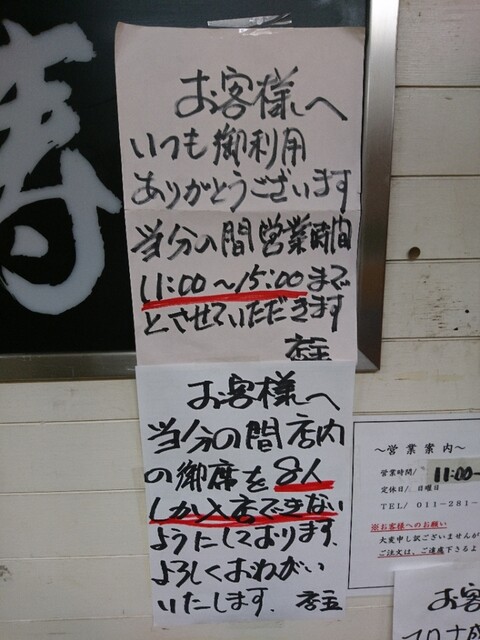 寿
お客様へ
いつも御利用
ありがとうございます
当分の間営業時間
11:00〜15:00まで
とさせていただきます
店主
お客様へ
当分の間店内
の御席を8人
しか入店できない
ようにしております、
よろしくおねがい
いたします、店主
〜営業案内〜
営業時間/11:00-
定休日/日曜日
TEL/011-281-
※お客様へのお願い
大変申し訳ございませんが
ご注文は、ご遠慮下さるよ
お客